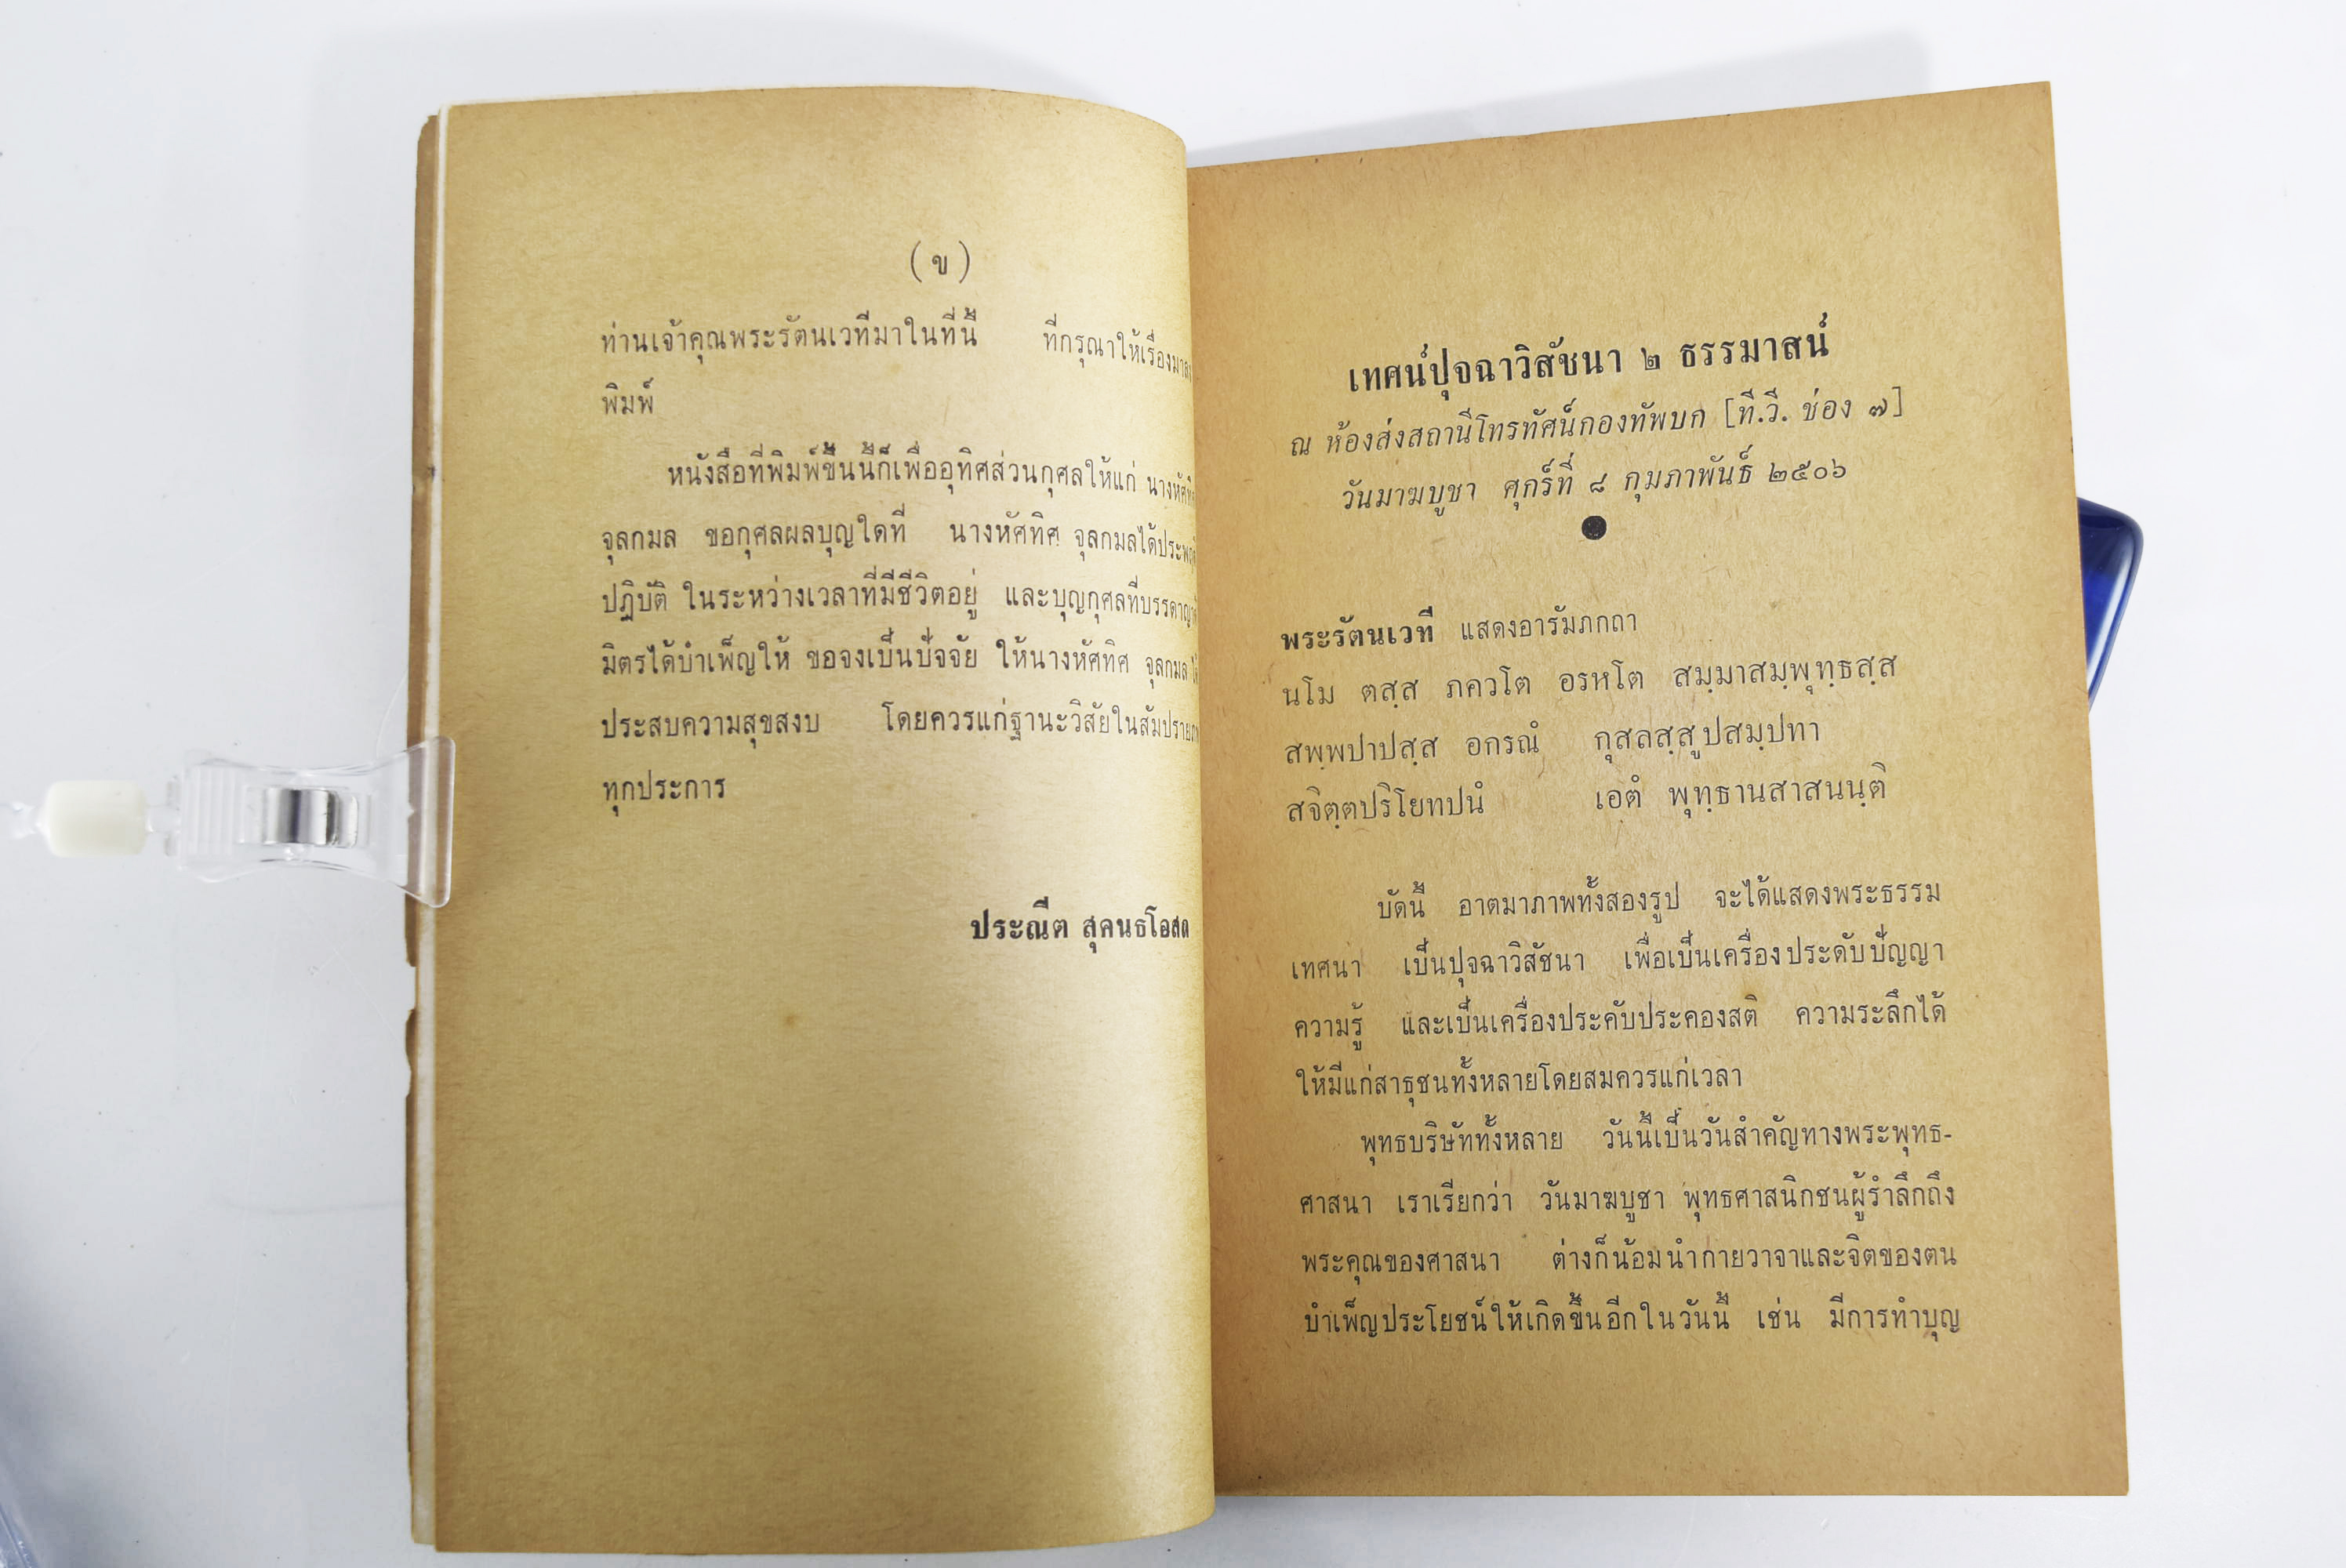 (ข)
ท่านเจ้าคุณพระรัตนเวทีมาในที่นี้ ที่กรุณาให้เรื่องมาลง
พิมพ์
หนังสือที่พิมพ์ขึ้นนี้ก็เพื่ออุทิศส่วนกุศลให้แก่ นางหัศทิศ
จุลกมล ขอกุศลผลบุญใดที่ นางหัศทิศ จุลกมลได้ประพฤติ
ปฏิบัติ ในระหว่างเวลาที่มีชีวิตอยู่ และบุญกุศลที่บรรดาญาติ
มิตรได้บำเพ็ญให้ ขอจงเป็นปัจจัย ให้นางหัศทิศ จุลกมล ได้
ประสบความสุขสงบ โดยควรแก่ฐานะวิสัยในสัมปรายภพ
ทุกประการ
ประณีต สุคนธโอสถ
เทศน์ปุจฉาวิสัชนา ๒ ธรรมาสน์
ณ ห้องส่งสถานีโทรทัศน์กองทัพบก [ที.วี. ช่อง ๗]
วันมาฆบูชา ศุกร์ที่ ๘ กุมภาพันธ์ ๒๕๐๖
พระรัตนเวที แสดงอารัมภกถา
นโม ตสฺส ภควโต อรหโต สมฺมาสมฺพุทฺธสฺส
สพฺพปาปสฺส อกรณํ กุสลสฺสูปสมฺปทา
สจิตฺตปริโยทปนํ เอตํ พุทฺธานสาสนนฺติ
บัดนี้ อาตมาภาพทั้งสองรูป จะได้แสดงพระธรรม
เทศนา เป็นปุจฉาวิสัชนา เพื่อเป็นเครื่องประดับปัญญา
ความรู้ และเป็นเครื่องประคับประคองสติ ความระลึกได้
ให้มีแก่สาธุชนทั้งหลายโดยสมควรแก่เวลา
พุทธบริษัททั้งหลาย วันนี้เป็นวันสำคัญทางพระพุทธ-
ศาสนา เราเรียกว่า วันมาฆบูชา พุทธศาสนิกชนผู้รำลึกถึง
พระคุณของศาสนา ต่างก็น้อมนำกายวาจาและจิตของตน
บำเพ็ญประโยชน์ให้เกิดขึ้นอีกในวันนี้ เช่น มีการทำบุญ